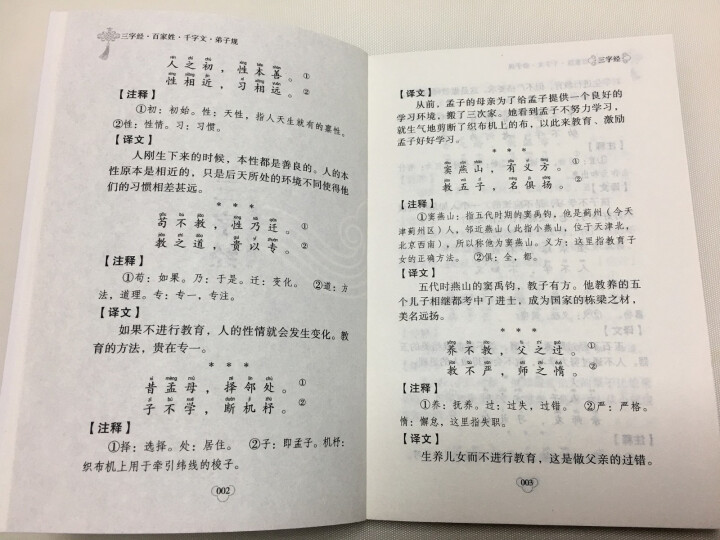 三字经·百家姓·千字文·弟子规
人之初，性本善。①
性相近，习相远。②
【注释】
①初：初始。性：天性，指人天生就有的禀性。
②性：性情。习：习惯。
【译文】
人刚生下来的时候，本性都是善良的。人的本
性原本是相近的，只是后天所处的环境不同使得他
们的习惯相差甚远。
* * *
苟不教，性乃迁。①
教之道，贵以专。②
【注释】
①苟：如果。乃：于是。迁：变化。 ②道：方
法，道理。专：专一，专注。
【译文】
如果不进行教育，人的性情就会发生变化。教
育的方法，贵在专一。
* * *
昔孟母，择邻处。①
子不学，断机杼。②
【注释】
①择：选择。处：居住。 ②子：即孟子。机杼：
织布机上用于牵引纬线的梭子。
002
三字经
【译文】
从前，孟子的母亲为了给孟子提供一个良好的
学习环境，搬了三次家。她看到孟子不努力学习，
就生气地剪断了织布机上的布，以此来教育、激励
孟子好好学习。
* * *
窦燕山，有义方。①
教五子，名俱扬。②
【注释】
①窦燕山：指五代时期的窦禹钧，他是蓟州（今天
津蓟州区）人，邻近燕山（此指小燕山，位于天津北，
北京西南），所以称他为窦燕山。义方：这里指教育子
女的正确方法。 ②俱：全，都。
【译文】
五代时燕山的窦禹钧，教子有方。他教养的五
个儿子相继都考中了进士，成为国家的栋梁之材，
美名远扬。
* * *
养不教，父之过。①
教不严，师之惰。②
【注释】
①养：抚养。过：过失，过错。 ②严：严格。
惰：懈怠，这里指失职。
【译文】
生养儿女而不进行教育，这是做父亲的过错。
003